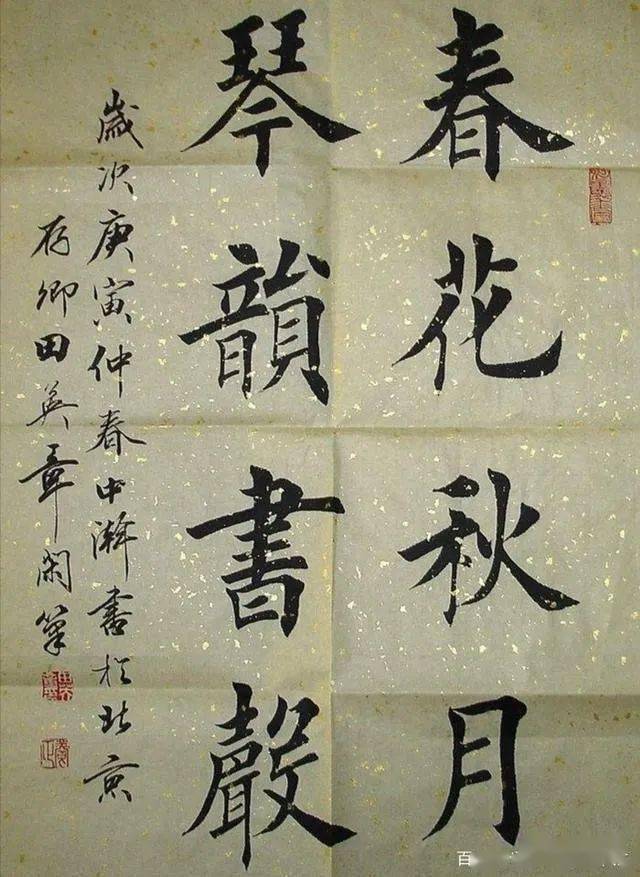 春花秋月
琴韻書聲
歲次庚寅仲春中澣書於北京
存卿田英章閑筆
百